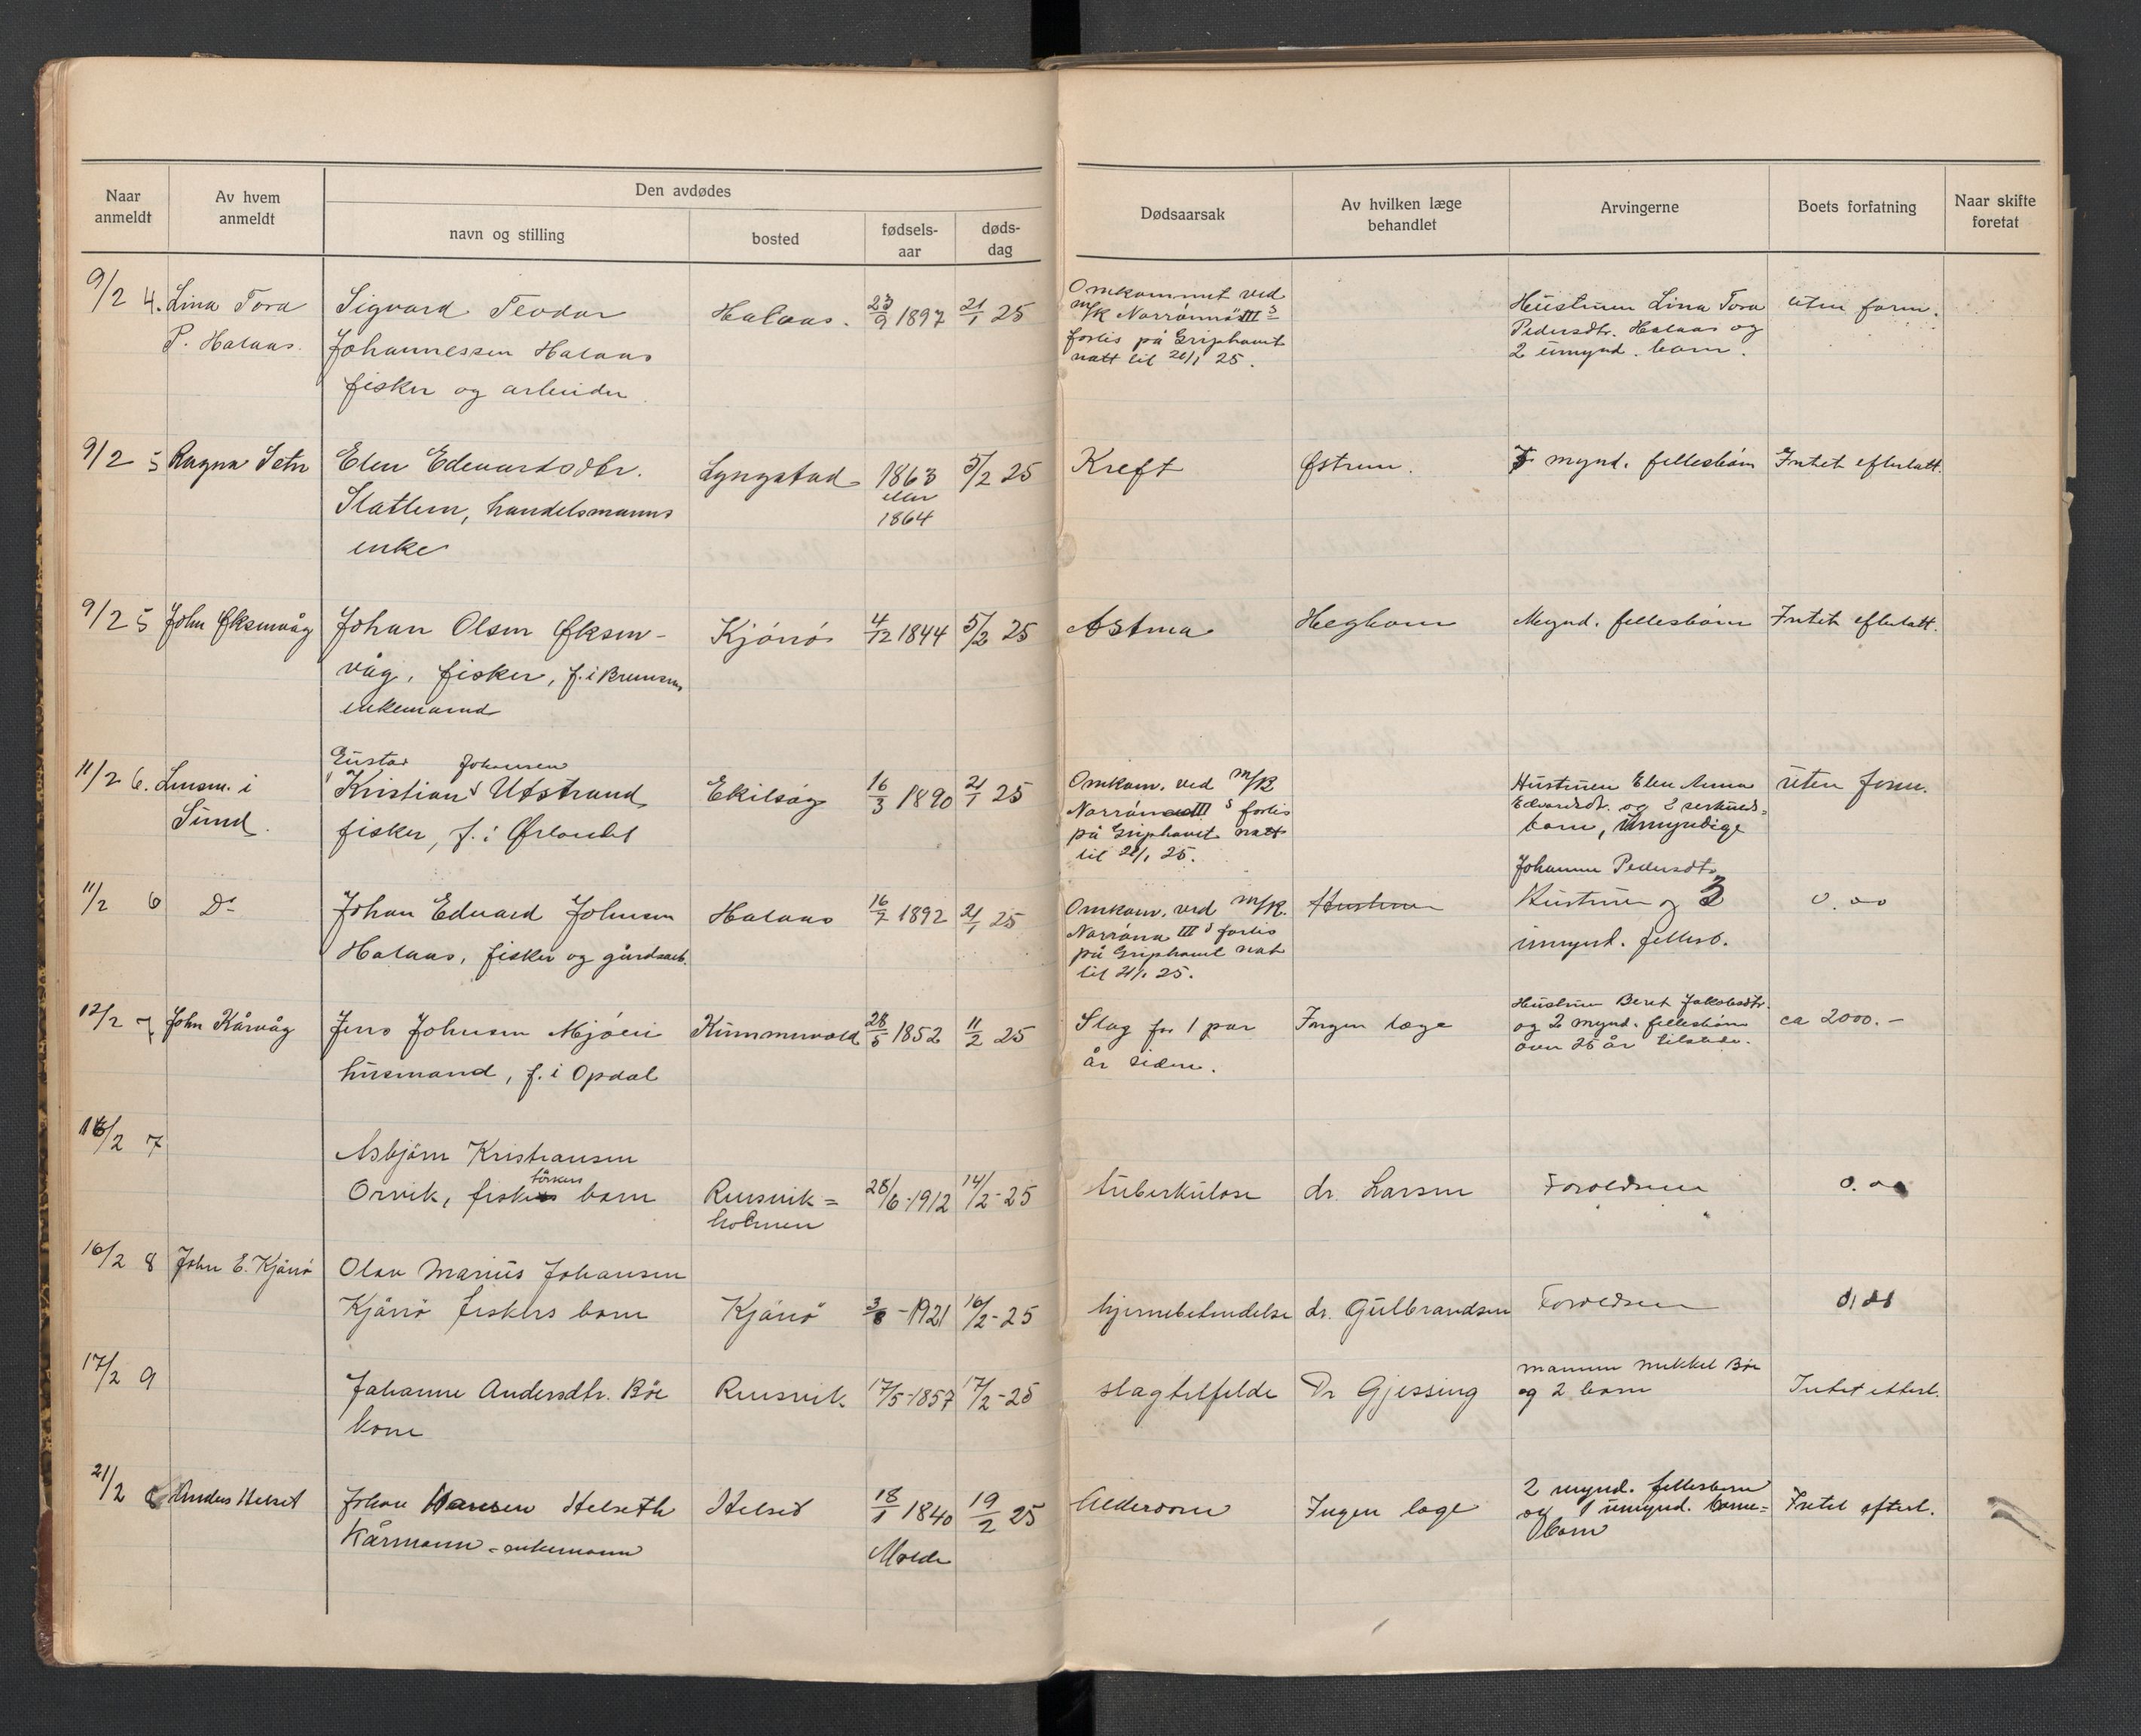 Naar anmeldt
Av hvem anmeldt
Den avdødes
navn og stilling
bosted
fødselsaar
dødsdag
Dødsaarsak
Av hvilken læge behandlet
Arvingerne
Boets forfatning
Naar skifte foretat
9/2 4. Lina Tora
P. Halaas
Sigvard Teodor
Johannessen Halaas
fisker og arbeider
Halaas.
23/9 1897
21/1 25
Omkommet ved
m/k Norrönna III s
forlis på Griphavet
natt til 21/1 25.
Hustruen Lina Tora
Pedersdtr. Halaas og
2 umynd. barn.
uten form.
9/2 5 Ragna Setn
Elen Edevardsdtr.
Slatlem, handelsmanns
enke
Lyngstad
1863
eller
1864
5/2 25
Kreft
Østrem.
mynd. fellesbarn
Intet efterlatt.
9/2 5 John Øksenvåg
Johan Olsen Øksen-
våg, fisker, f. i Bremsnes
enkemand
Kjönnö
4/12 1844
5/2 25
Astma
Heghom
Mynd. fellesbarn
Intet efterlatt.
11/2 6. Lensm. i
Sund.
Gustav Johansen
Kristian Utstrand
fisker, f. i Ørlandet
Ekilsög
16/3 1890
21/1 25
Omkom. ved m/k
Norröna III s forlis
på Griphavet natt
til 21/1 25.
Hustruen Elen Anna
Edvardsdt. og 2 serkuls-
barn, umyndige
uten form.
11/2 6 Do
Johan Edvard Johnsen
Halaas, fisker og gårdsarb.
Halaas
16/7 1892
21/1 25
Omkom. ved m/k.
Norröna III s forlis
på Griphavet nat
til 21/1 25.
Hustruen
Johanne Pedersdtr
Hustruen og 3
umynd. fellesb.
0.00
12/2 7 John Kårvåg
Jens Johnsen Mjöen
husmand, f. i Opdal
Kummervold
28/5 1852
11/2 25
Slag for 1 par
år siden.
Ingen læge
Hustruen Beret Jakobsdtr.
og 2 mynd. fellesbarn
over 25 år tilstede.
ca 2000.-
16/2 7
Asbjörn Kristiansen
Orvik, fiskers barn
Rensvik=
holmen
28/6-1912
14/2-25
tuberkulose
dr. Larsen
Foreldrene
0.00
16/2 8 John E. Kjönnö
Olav Marius Johansen
Kjönnö fiskers barn
Kjönnö
3/8-1921
16/2-25
hjernebetendelse
dr. Gulbrandsen
Foreldrene
17/2 9
Johanne Andersdtr. Böe
kone
Rensvik
17/5-1857
17/2-25
slagtilfelde
Dr Gjessing
mannen Mikkel Böe
og 2 barn
Intet etterl.
21/2 8 Anders Helset
Johan Hansen Helseth
Kårmann - enkemann
Helset
18/1 1840
Molde
19/2 25
Alderdom
Ingen læge
2 mynd. fellesbarn
og 1 umynd. barne=
barn
Intet efterl.